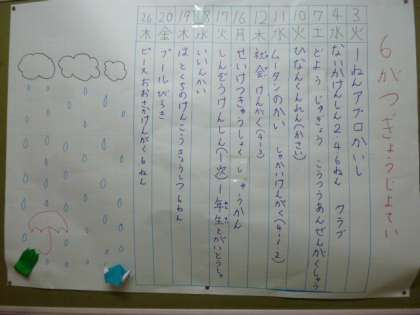 6がつぎょうじよてい
3 火 一ねんアプロかいし
4 水 ないかけんしん246ねん クラブ
7 土 どようじゅぎょう こうつうあんぜんがくしゅう
10 火 ひなんくんれん(かさい)
11 水 ムータンのかい しゃかいけんがく(4-1.2)
12 木 社会けんがく(4-3)
16 月 せいけつきゅうしょくしゅうかん
17 火 しんぞうけんしん(1次)1年生とがいとうしゃ
18 水 いいんかい
19 木 はとくちのけんこう
20 金 プールびらき
26 木 ピースおおさかけんがく6ねん